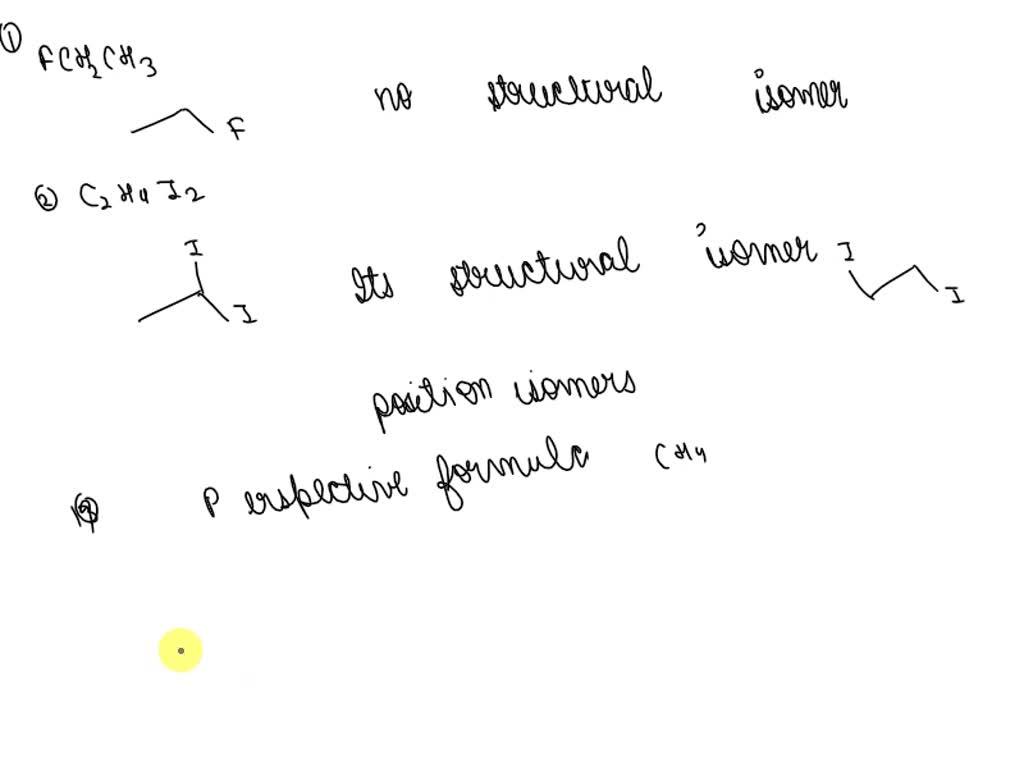 ① FCH2CH3
no structural isomer
F
② C2H4I2
I
I
Its structural isomer
I
I
position isomers
Perspective formula CH4